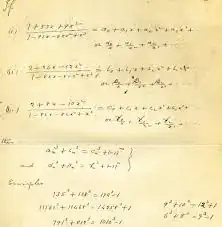 If
(i) (1+53x+9x²)/(1-82x-82x²+x³) = a₀+a₁x+a₂x²+a₃x³+···
or α₀/x+α₁/x²+α₂/x³+···
(ii) (2-26x-12x²)/(1-82x-82x²+x³) = b₀+b₁x+b₂x²+b₃x³+···
or β₀/x+β₁/x²+β₂/x³+···
(iii) (2+8x-10x²)/(1-82x-82x²+x³) = c₀+c₁x+c₂x²+c₃x³+···
or γ₀/x+γ₁/x²+γ₂/x³+···
then
aₙ³+bₙ³ = cₙ³+(-1)ⁿ
and αₙ³+βₙ³ = γₙ³+(-1)ⁿ
Examples
135³+138³=172³-1
11161³+11468³=14258³+1
791³+812³=1010³-1
9³+10³=12³+1
6³+8³=9³-1